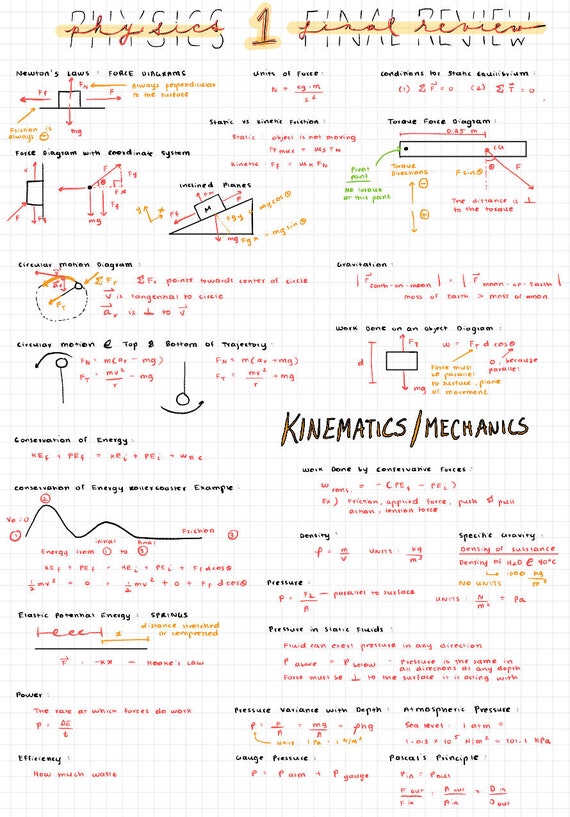 PHYSICS 1 FINAL REVIEW
physics final review
Newton's Laws : FORCE DIAGRAMS
FN
Always perpendicular
to the surface
Ff
F
mg
Friction is
always ⊖
Units of Force :
N = kg·m
s²
Conditions for Static Equilibrium :
(1) Σ F⃗ = 0 (2) Σ T⃗ = 0
Static vs Kinetic Friction :
Static : object is not moving
Ff max = μs FN
Kinetic : Ff = μk FN
Torque Force Diagram :
0.25 m
CG
Pivot
point
No torque
at this point
Torque
Directions
⊖
⊕
F sinθ
θ
F
The distance is ⊥
to the torque
Force Diagram with coordinate system
F
Ff
mg
F
Fy
Fx
θ
Ff
mg
Inclined Planes
y
x
FN
M
Ff
Fgy = mg cosθ
mg
Fgx = mg sinθ
Circular motion Diagram :
v⃗
ar
FT
Σ Fr
Σ Fr points towards center of circle
v⃗ is tangential to circle
a⃗r is ⊥ to v⃗
Gravitation :
| F⃗ earth-on-moon | = | F⃗ moon-on-Earth |
mass of Earth > mass of moon
Circular motion @ Top & Bottom of Trajectory :
FN = m(ar - mg)
FT = mv² - mg
r
FN = m(ar + mg)
FT = mv² + mg
r
Work Done on an object Diagram :
d
FT
mg
W = FT d cosθ
Force must
be parallel
to surface, plane
of movement
0, because
parallel
KINEMATICS/MECHANICS
Conservation of Energy :
KEf + PEf = KEi + PEi + Wnc
Work Done by Conservative Forces :
Wcons. = -(PEf - PEi)
Ex) Friction, applied force, push & pull
action, tension force
Conservation of Energy Rollercoaster Example :
②
v₀ = 0
①
initial
final
Friction
③
Energy from ① to ③
KEf + PEf = KEi + PEi + Ff d cosθ
½mv² + 0 = ½mv² + 0 + Ff d cosθ
Density :
ρ = m
V
UNITS : kg
m³
Specific Gravity :
Density of substance
Density of H₂O @ 40°C
1000 kg
m³
NO UNITS
Pressure :
P = F⊥ — parallel to surface
A
UNITS : N = Pa
m²
Elastic Potential Energy : SPRINGS
x
distance stretched
or compressed
F⃗ = -kx — Hooke's Law
Pressure in Static Fluids :
Fluid can exert pressure in any direction
P above = P below - Pressure is the same in
all directions at any depth
Force must be ⊥ to the surface it is acting with
Power :
The rate at which forces do work
P = ΔE
t
Pressure Variance with Depth :
P = F = mg = ρhg
A A
units : 1 Pa = 1 N/m²
Atmospheric Pressure :
Sea level : 1 atm =
1.013 × 10⁵ N/m² = 101.1 kPa
Efficiency :
How much waste
Gauge Pressure :
P = P atm + P gauge
Pascal's Principle :
Pin = Pout
F out = A out = D in
F in A in D out